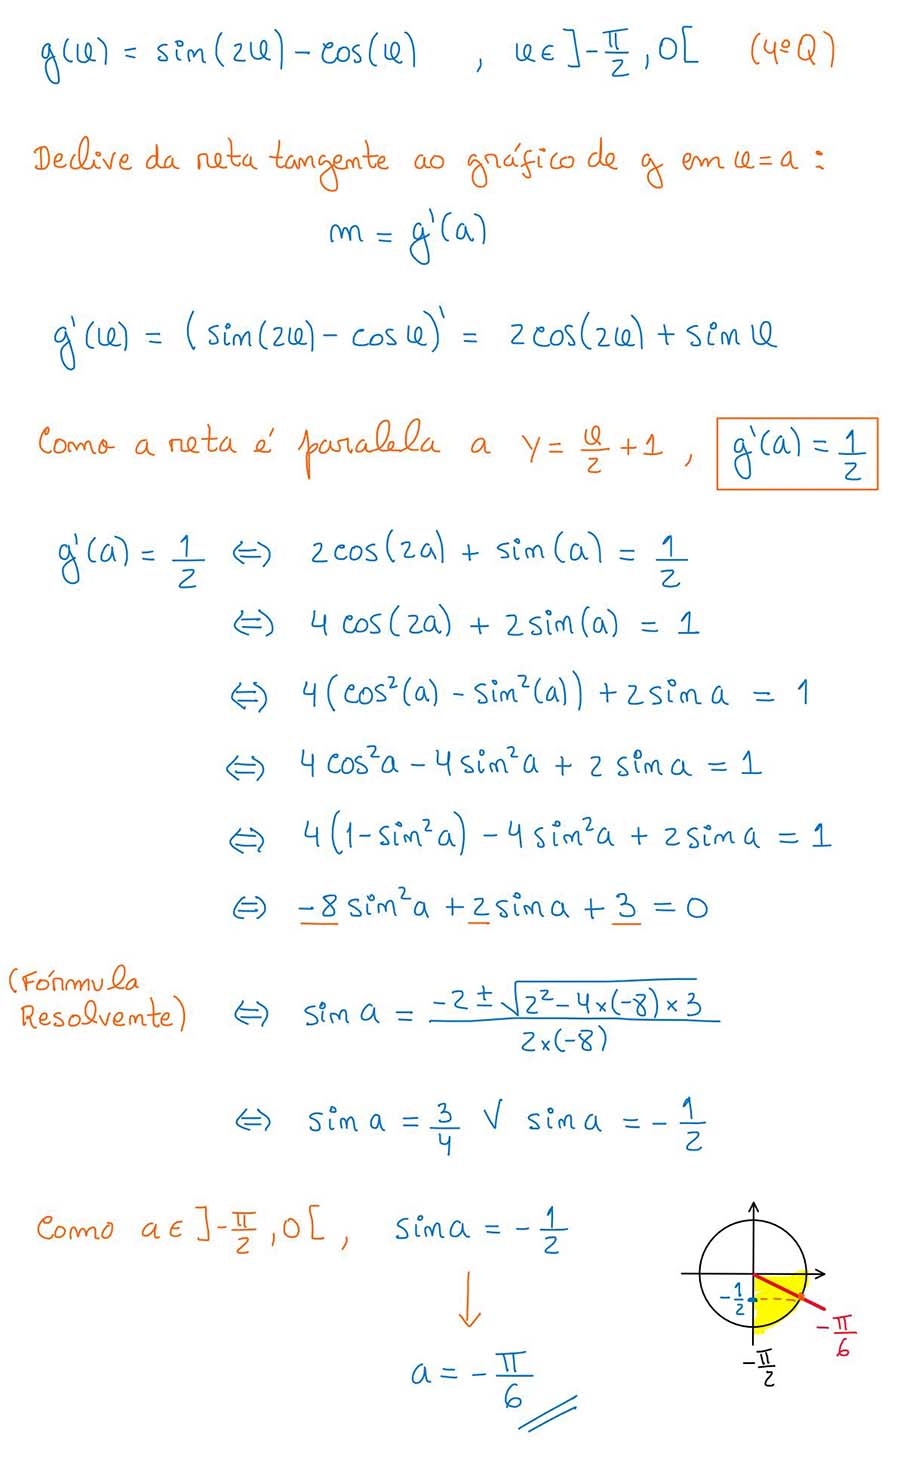 g(x) = sin(2x) - cos(x) , x ∈ ]-π/2, 0[ (4ºQ)
Declive da reta tangente ao gráfico de g em x = a :
m = g'(a)
g'(x) = (sin(2x) - cos x)' = 2cos(2x) + sin x
Como a reta é paralela a y = x/2 + 1 , g'(a) = 1/2
g'(a) = 1/2 ⇔ 2cos(2a) + sin(a) = 1/2
⇔ 4 cos(2a) + 2sin(a) = 1
⇔ 4(cos²(a) - sin²(a)) + 2 sin a = 1
⇔ 4 cos²a - 4 sin²a + 2 sin a = 1
⇔ 4(1 - sin²a) - 4 sin²a + 2 sin a = 1
⇔ -8 sin²a + 2 sin a + 3 = 0
(Fórmula
Resolvente) ⇔ sin a = (-2 ± √(2² - 4×(-8)×3)) / (2×(-8))
⇔ sin a = 3/4 ∨ sin a = -1/2
Como a ∈ ]-π/2, 0[ , sin a = -1/2
-1/2
-π/6
-π/2
a = -π/6